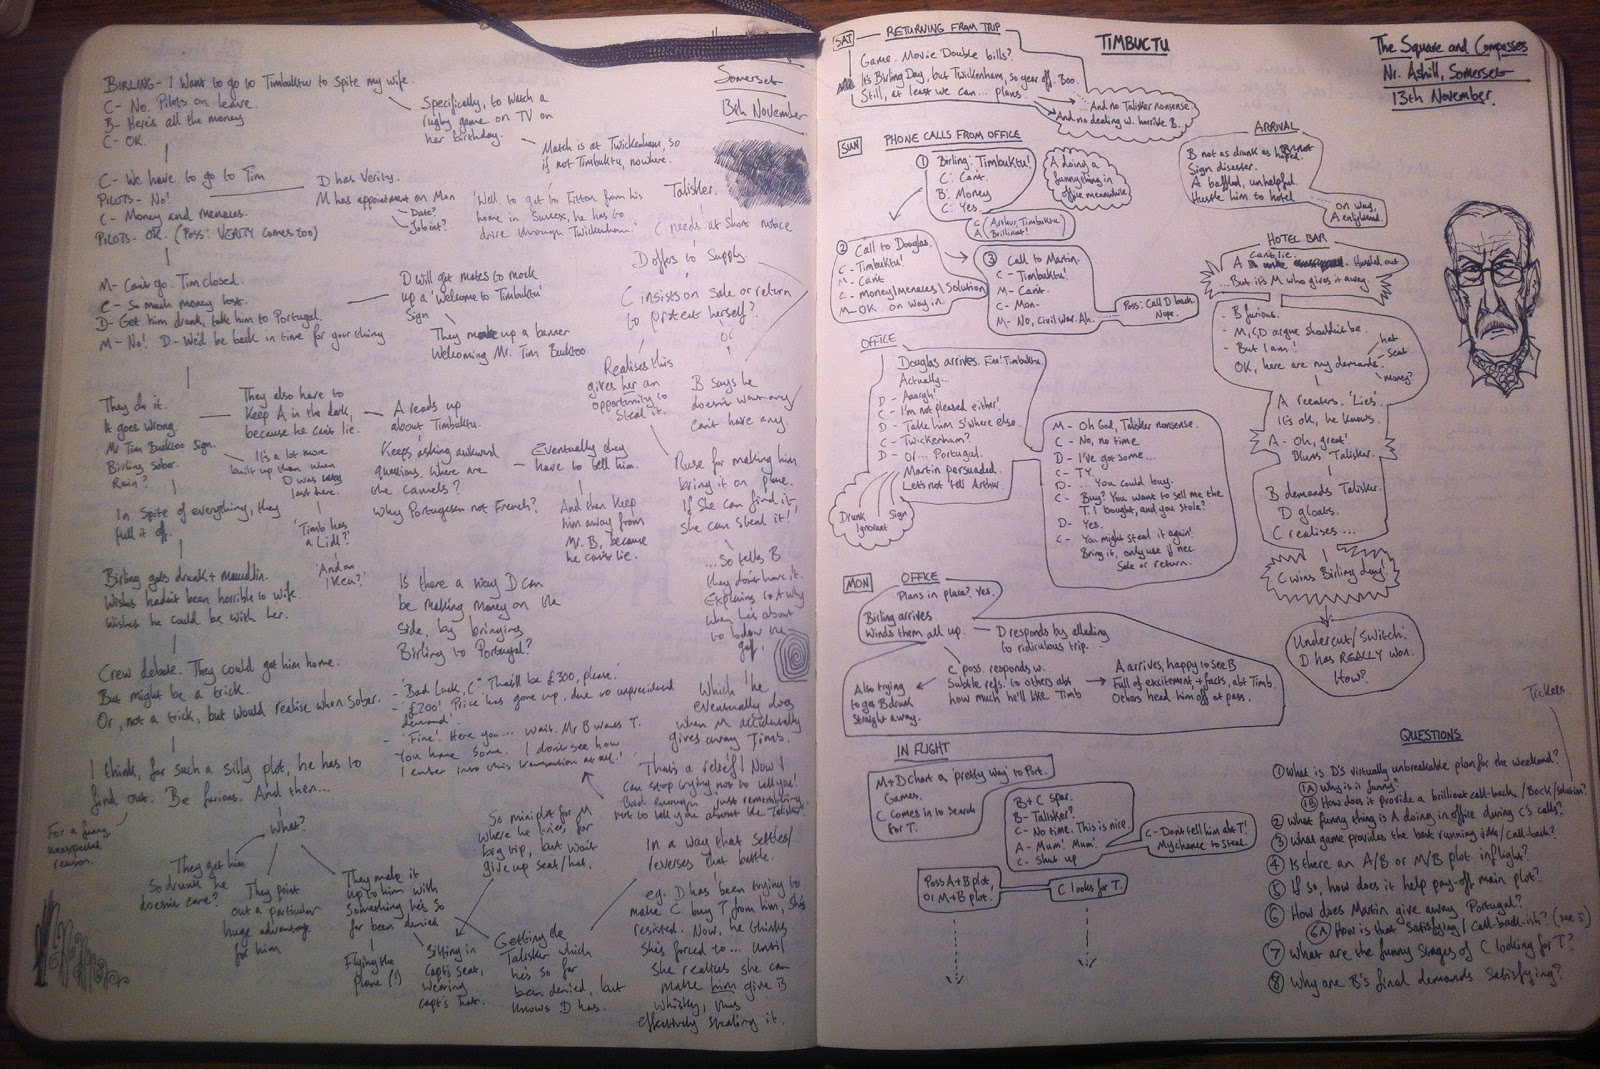 BIRLING - I want to go to Timbuktu to spite my wife.
C - No. Pilots on leave.
B - Here's all the money
C - OK.
Specifically, to watch a
rugby game on TV on
her birthday.
Match is at Twickenham, so
if not Timbuktu, nowhere.
Somerset
13th November
C - We have to go to Tim
PILOTS - No!
C - Money and menaces.
PILOTS - OK. (Poss: VERITY comes too)
D has Verity.
M has appointment on Mon
Date?
Job int?
'Well, to get to Fitton from his
home in Sussex, he has to
drive through Twickenham.'
Talisker.
C needs at short notice
D offers to supply.
C insists on sale or return
to protect herself?
or
?
M - Can't go. Tim closed.
C - So much money lost.
D - Get him drunk, take him to Portugal.
M - No! D - We'd be back in time for your thing
D will get mates to mock
up a 'Welcome to Timbuktu'
sign
They make up a banner
Welcoming Mr. Tim Bucktoo
Realises this
gives her an
opportunity to
steal it.
B says he
doesn't want any
can't have any.
They do it.
It goes wrong.
Mr Tim Bucktoo sign.
Birling sober.
Rain?
They also have to
keep A in the dark,
because he can't lie.
It's a lot more
built up than when
D was last here.
A reads up
about Timbuktu.
Keeps asking awkward
questions. Where are
the camels?
Why Portuguese not French?
Eventually they
have to tell him.
And then keep
him away from
Mr. B, because
he can't lie.
Ruse for making him
bring it on plane.
If she can find it
she can steal it!
In spite of everything, they
pull it off.
'Timb has
a Lidl?'
'And an
Ikea?'
...So tells B
they don't have it.
Explaining to A why
when he's about
to blow the
gaff.
Birling gets drunk + maudlin.
Wishes hadn't been horrible to wife.
Wishes he could be with her.
Is there a way D can
be making money on the
side, by bringing
Birling to Portugal?
Crew debate. They could get him home.
But might be a trick.
Or, not a trick, but would realise when sober.
- 'Bad Luck, C.' That'll be £300, please.'
- '£200! Price has gone up, due to unprecedented
demand'
- 'Fine! Here you... Wait. Mr B wants T.
You have some. I don't see how
I enter into this transaction at all.'
Which he
eventually does
when M accidentally
gives away Timb.
'That's a relief! Now I
can stop trying not to tell you!
Bad enough just remembering
not to tell you about the Talisker.'
I think, for such a silly plot, he has to
find out. Be furious. And then...
For a funny
unexpected
reason.
What?
They get him
so drunk he
doesn't care?
They point
out a particular
huge advantage
for him
They make it
up to him with
something he's so
far been denied
Flying the
plane (!)
Sitting in
capt's seat,
wearing
capt's hat.
Getting the
Talisker which
he's so far
been denied, but
knows D has.
So miniplot for M
where he tries, for
big tip, but won't
give up seat/hat.
In a way that settles/
reverses that battle.
eg. D has been trying to
make C buy T from him, she's
resisted. Now, he thinks
she's forced to... until
she realises she can
make him give B
whiskey, thus
effectively stealing it.
SAT
RETURNING FROM TRIP
Game. Movie Double bills?
It's Birling Day, but Twickenham, so year off. Boo.
Still, at least we can... plans.
And no Talisker nonsense.
And no dealing w. horrible B.
TIMBUCTU
The Square and Compasses
Nr. Ashill, Somerset
13th November.
SUN
PHONE CALLS FROM OFFICE
① Birling: Timbuktu!
C: Can't.
B: Money
C: Yes.
A doing a
funny thing in
office meanwhile
C (Arthur, Timbuktu!
A Brilliant!)
② Call to Douglas.
C - Timbuktu!
M - Can't
C - money/menaces/Solution
M - OK. on way in.
③ Call to Martin.
C - Timbuktu!
M - Can't.
C - Mon.
M - No, civil war. Ah.
Poss: Call D back.
Nope.
OFFICE
Douglas arrives. Fine! Timbuktu.
Actually...
D - Aaargh!
C - I'm not pleased either!
D - Take him s'where else.
C - Twickenham?
D - Or... Portugal.
Martin persuaded.
Let's not tell Arthur.
Drunk
Ignorant
Sign
M - Oh God, Talisker nonsense.
C - No, no time
D - I've got some...
C - TY.
D - ... You could buy.
C - Buy? You want to sell me the
T. I bought, and you stole?
D - Yes.
C - You might steal it again!
Bring it, only use if nec.
Sale or return.
MON
OFFICE
Plans in place? Yes.
Birling arrives
Winds them all up.
D responds by alluding
to ridiculous trip.
C poss. responds w.
Subtle refs. to others abt
how much he'll like Timb
Also trying
to get B drunk
straight away.
A arrives, happy to see B
Full of excitement + facts, abt Timb.
Others head him off at pass.
IN FLIGHT
M + D chart a 'pretty way' to Port.
Games.
C comes in to search
for T.
B + C spar.
B - Talisker?
C - No time. This is nice.
A - Mum! Mum!
C - Shut up
C - Don't tell him abt T!
My chance to steal.
Poss A + B plot,
or M + B plot.
C looks for T.
ARRIVAL
B not as drunk as hoped.
Sign disaster.
A baffled, unhelpful.
Hustle him to hotel
on way,
A enlightened.
HOTEL BAR
A can't lie. Hustled out
...But it's M who gives it away.
- B furious.
- M, C, D argue shouldn't be.
- But I am!
OK, here are my demands.
hat
seat
money?
A reenters. 'Lies'.
It's ok, he knows.
A - Oh, great!
Blurts Talisker.
B demands Talisker.
D gloats.
C realises...
C wins Birling day!
Undercut/Switch:
D has REALLY won.
How?
Tickets
QUESTIONS
① What is D's virtually unbreakable plan for the weekend?
①A Why is it funny?
①B How does it provide a brilliant call-back/Bock/solution?
② What funny thing is A doing in office during C's calls?
③ What game provides the best running joke/call-back?
④ Is there an A/B or M/B plot inflight?
⑤ If so, how does it help pay-off main plot?
⑥ How does Martin give away Portugal?
⑥A How is that satisfying/call-back-ish? (see 5)
⑦ What are the funny stages of C looking for T?
⑧ Why are B's final demands satisfying?